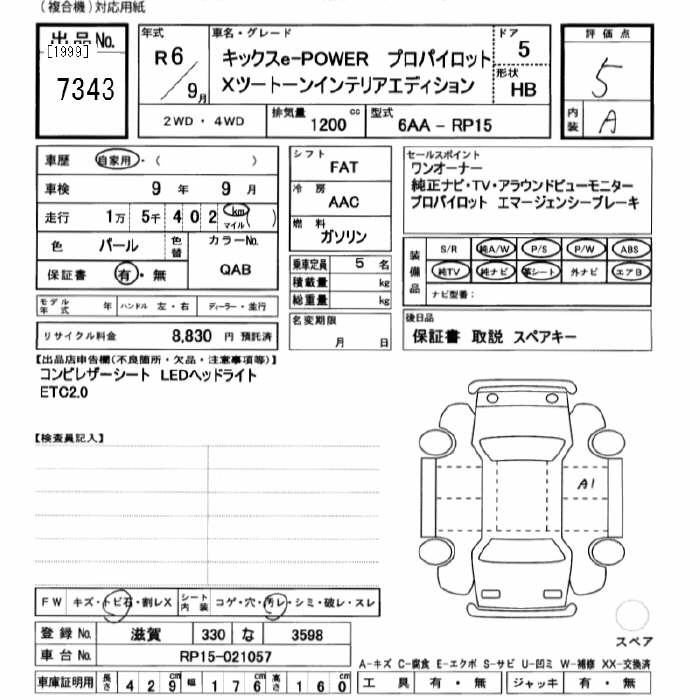 (複合機)対応用紙
出品No.
[1999]
7343
年式
R6/9月
車名・グレード
キックスe-POWER プロパイロット
Xツートーンインテリアエディション
ドア
5
形状
HB
評価点
5
内装
A
2WD・4WD
排気量
1200 cc
型式
6AA-RP15
車歴 自家用・( )
車検 9年 9月
走行 1万 5千 402 km マイル ( )
色 パール 色替
カラーNo.
QAB
保証書 有・無
モデル年式 年 ハンドル 左・右 ディーラー・並行
リサイクル料金 8,830 円 預託済
シフト
FAT
冷房
AAC
燃料
ガソリン
乗車定員 5 名
積載量 kg
総重量 kg
名変期限
月 日
セールスポイント
ワンオーナー
純正ナビ・TV・アラウンドビューモニター
プロパイロット エマージェンシーブレーキ
装備品
S/R 純A/W P/S P/W ABS
純TV 純ナビ 革シート 外ナビ エアB
ナビ型番:
後日品
保証書 取説 スペアキー
【出品店申告欄(不良箇所・欠品・注意事項等)】
コンビレザーシート LEDヘッドライト
ETC2.0
【検査員記入】
A1
スペア
FW キズ・トビ石・割レX シート内装 コゲ・穴・汚レ・シミ・破レ・スレ
登録No. 滋賀 330 な 3598
車台No. RP15-021057
車庫証明用 長さ 429 cm 幅 176 cm 高さ 160 cm
A-キズ C-腐食 E-エクボ S-サビ U-凹ミ W-補修 XX-交換済
工具 有・無 ジャッキ 有・無